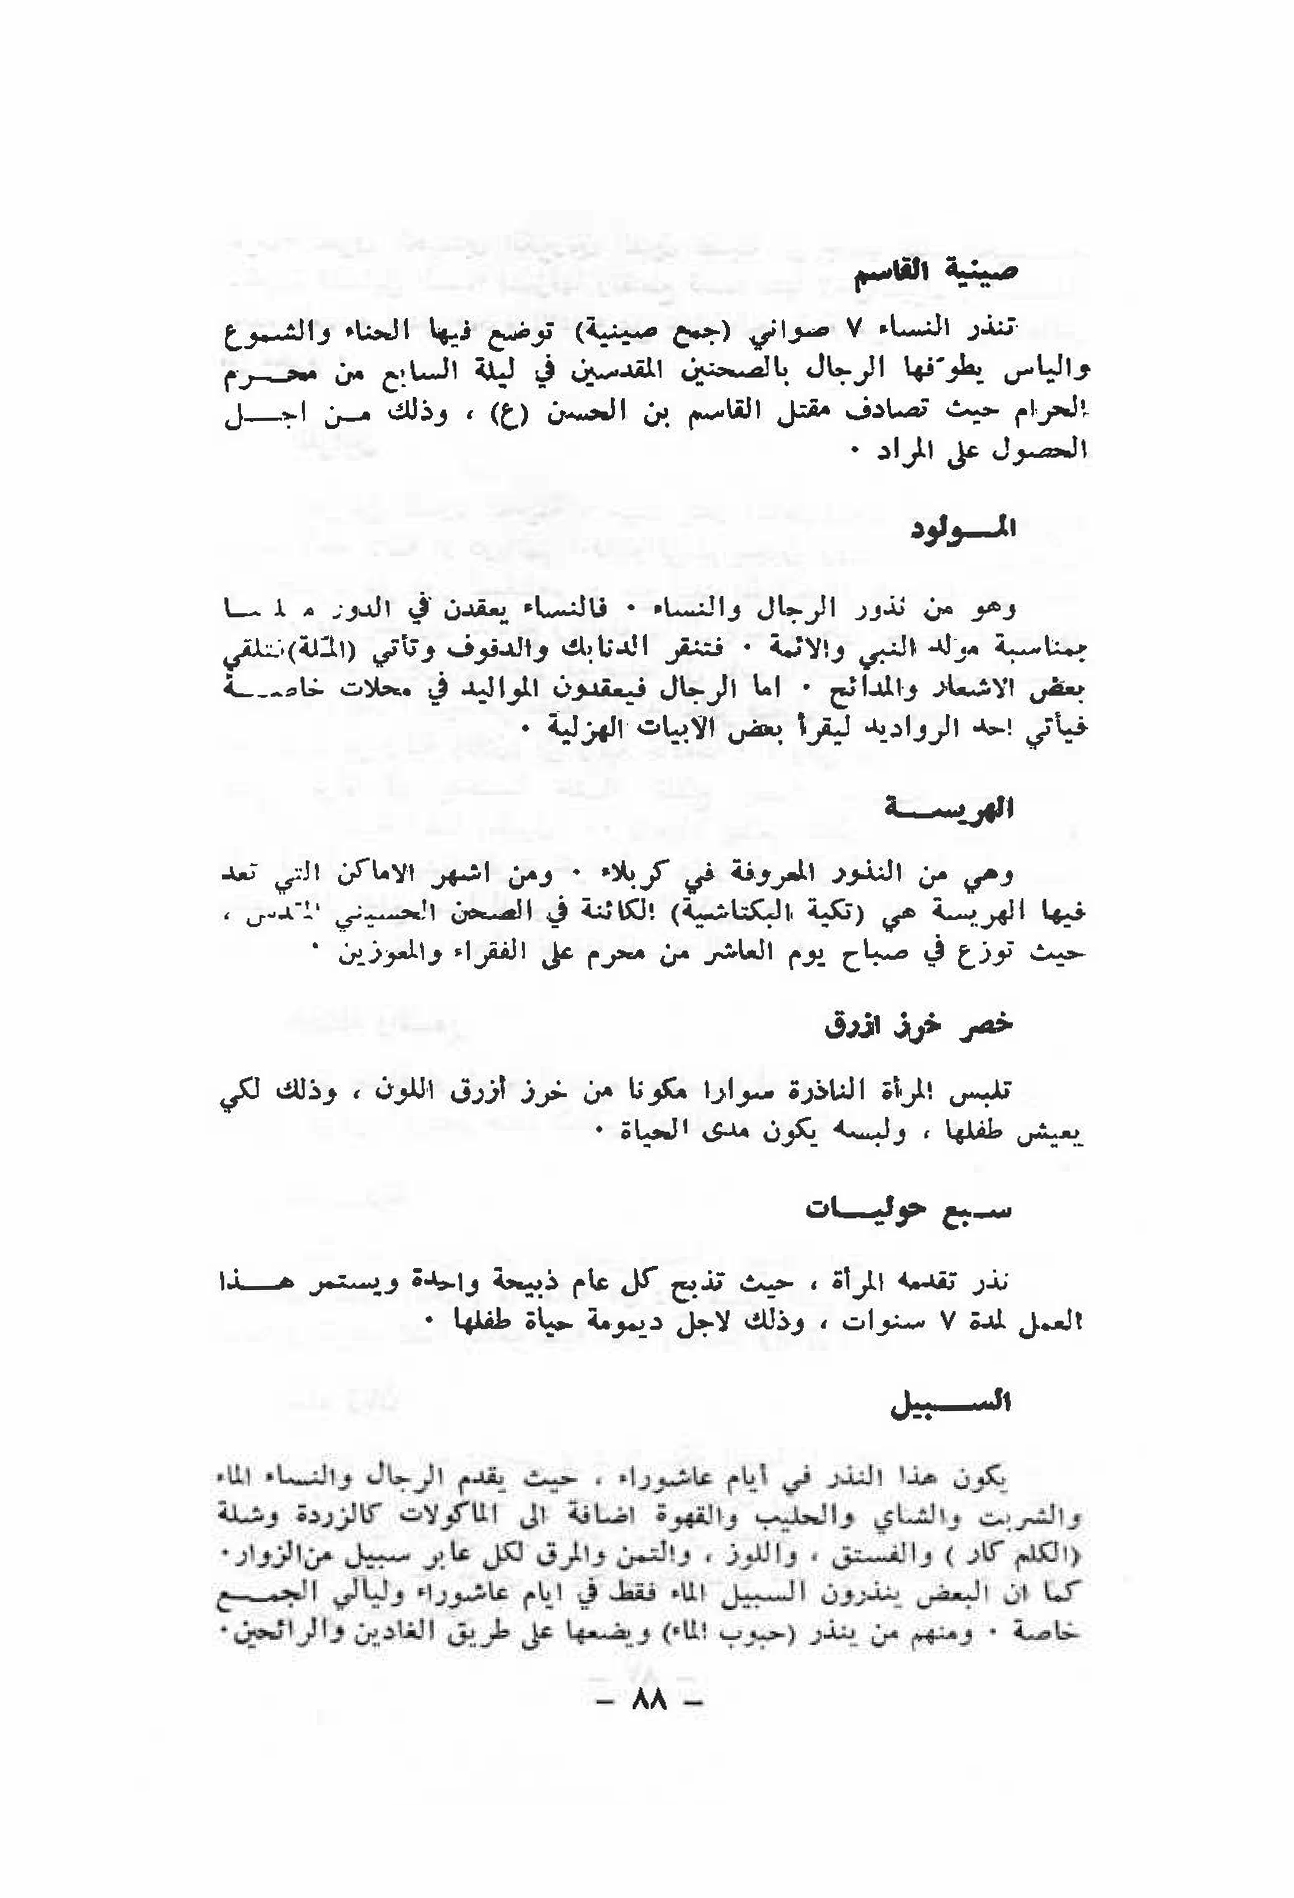 صينية القاسم
تنذر النساء ٧ صواني (جمع صينية) توضع فيها الحناء والشموع
والياس يطوّفها الرجال بالصحنين المقدسين في ليلة السابع من محرم
الحرام حيث تصادف مقتل القاسم بن الحسن (ع) ، وذلك من اجل
الحصول على المراد ٠
المولود
وهو من نذور الرجال والنساء ٠ فالنساء يعقدن في الدور
بمناسبة مولد النبي والائمة ٠ فتنقر الدنابك والدفوف وتأتي (الملة) فتلقي
بعض الاشعار والمدائح ٠ اما الرجال فيعقدون المواليد في محلات خاصة
فيأتي احد الرواديد ليقرأ بعض الابيات الهزلية ٠
الهريسة
وهي من النذور المعروفة في كربلاء ٠ ومن اشهر الاماكن التي تعد
فيها الهريسة هي (تكية البكتاشية) الكائنة في الصحن الحسيني المقدس ،
حيث توزع في صباح يوم العاشر من محرم على الفقراء والمعوزين ٠
خصر خرز ازرق
تلبس المرأة الناذرة سوارا مكونا من خرز أزرق اللون ، وذلك لكي
يعيش طفلها ، ولبسه يكون مدى الحياة ٠
سبع حوليات
نذر تقدمه المرأة ، حيث تذبح كل عام ذبيحة واحدة ويستمر هذا
العمل لمدة ٧ سنوات ، وذلك لاجل ديمومة حياة طفلها ٠
السبيل
يكون هذا النذر في أيام عاشوراء ، حيث يقدم الرجال والنساء الماء
والشربت والشاي والحليب والقهوة اضافة الى الماكولات كالزردة وشلة
(الكلم كار ) والفستق ، واللوز ، والتمن والمرق لكل عابر سبيل من الزوار٠
كما ان البعض ينذرون السبيل الماء فقط في ايام عاشوراء وليالي الجمع
خاصة ٠ ومنهم من ينذر (حبوب الماء) ويضعها على طريق الغادين والرائحين٠
– ٨٨ –